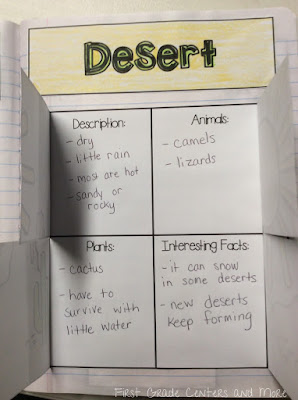 Desert
Description:
- dry
- little rain
- most are hot
- sandy or
rocky
Animals:
- camels
- lizards
Plants:
- cactus
- have to
survive with
little water
Interesting Facts:
- it can snow
in some deserts
- new deserts
keep forming
First Grade Centers and More